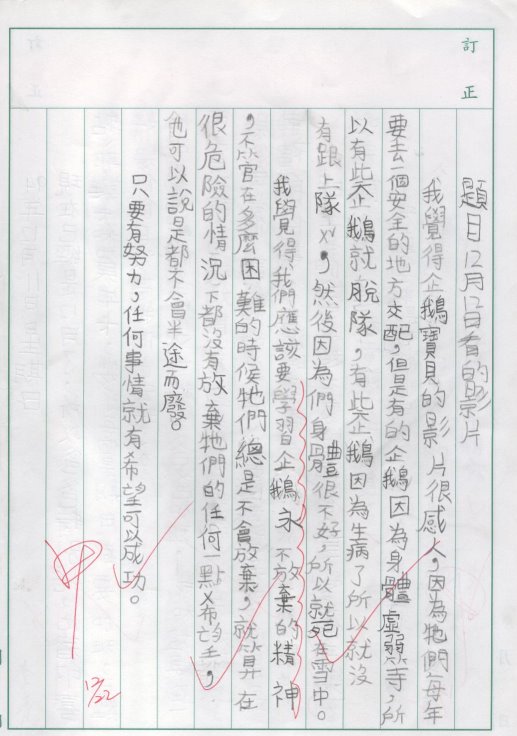 訂正
題目12月12日看的影片
我覺得企鵝寶貝的影片很感人,因為牠們每年
要去一個安全的地方交配,但是有的企鵝因為身體虛弱等,所
以有些企鵝就脫隊,有些企鵝因為生病了所以就沒
有跟上隊ㄨˇ,然後因為們身體很不好,所以就死在雪中。
我覺得我們應該要學習企鵝永不放棄的精神
,不管在多麼困難的時候牠們總是不會放棄,就算在
很危險的情況下都沒有放棄牠們的任何一點ㄨ希望,
也可以說是都不會半途而廢。
只要有努力,任何事情就有希望可以成功。
甲
12/22